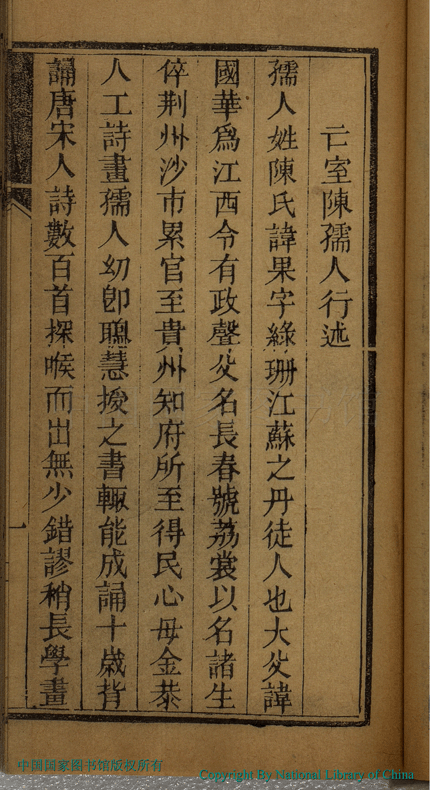 亡室陳孺人行述
孺人姓陳氏諱果字綠珊江蘇之丹徒人也大父諱
國華爲江西令有政聲父名長春號荔裳以名諸生
倅荆州沙市累官至貴州知府所至得民心毋金恭
人工詩畫孺人幼卽聰慧授之書輙能成誦十歲背
誦唐宋人詩數百首探喉而出無少錯謬稍長學畫
一
中国国家图书馆版权所有
Copyright By National Library of China